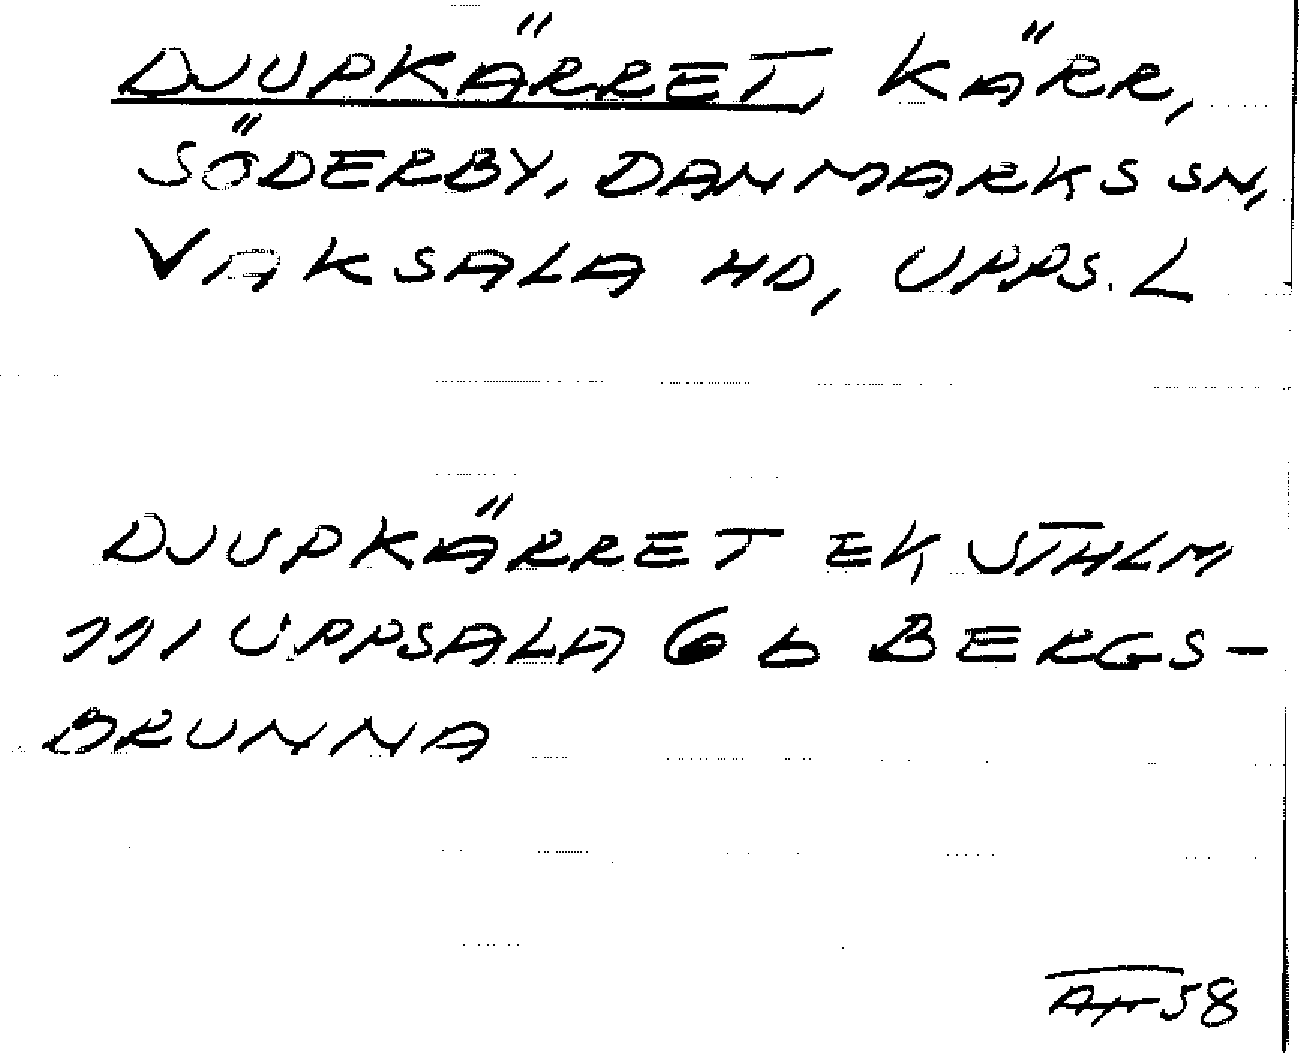 DJUPKÄRRET, KÄRR,
SÖDERBY, DANMARKS SN,
VAKSALA HD, UPPS. L
DJUPKÄRRET EK STHLM
111 UPPSALA 6 b BERGS-
BRUNNA
58